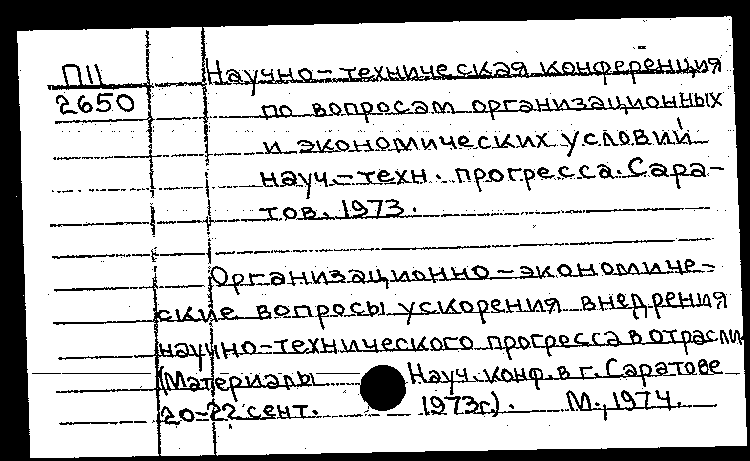 П11
2650
Научно-техническая конференция
по вопросам организационных
и экономических условий
науч.-техн. прогресса. Сара-
тов. 1973.
Организационно-экономиче-
ские вопросы ускорения внедрения
научно-технического прогресса в отрасли
(Материалы Науч. конф. в г. Саратове
20-22 сент. 1973г.). М., 1974.